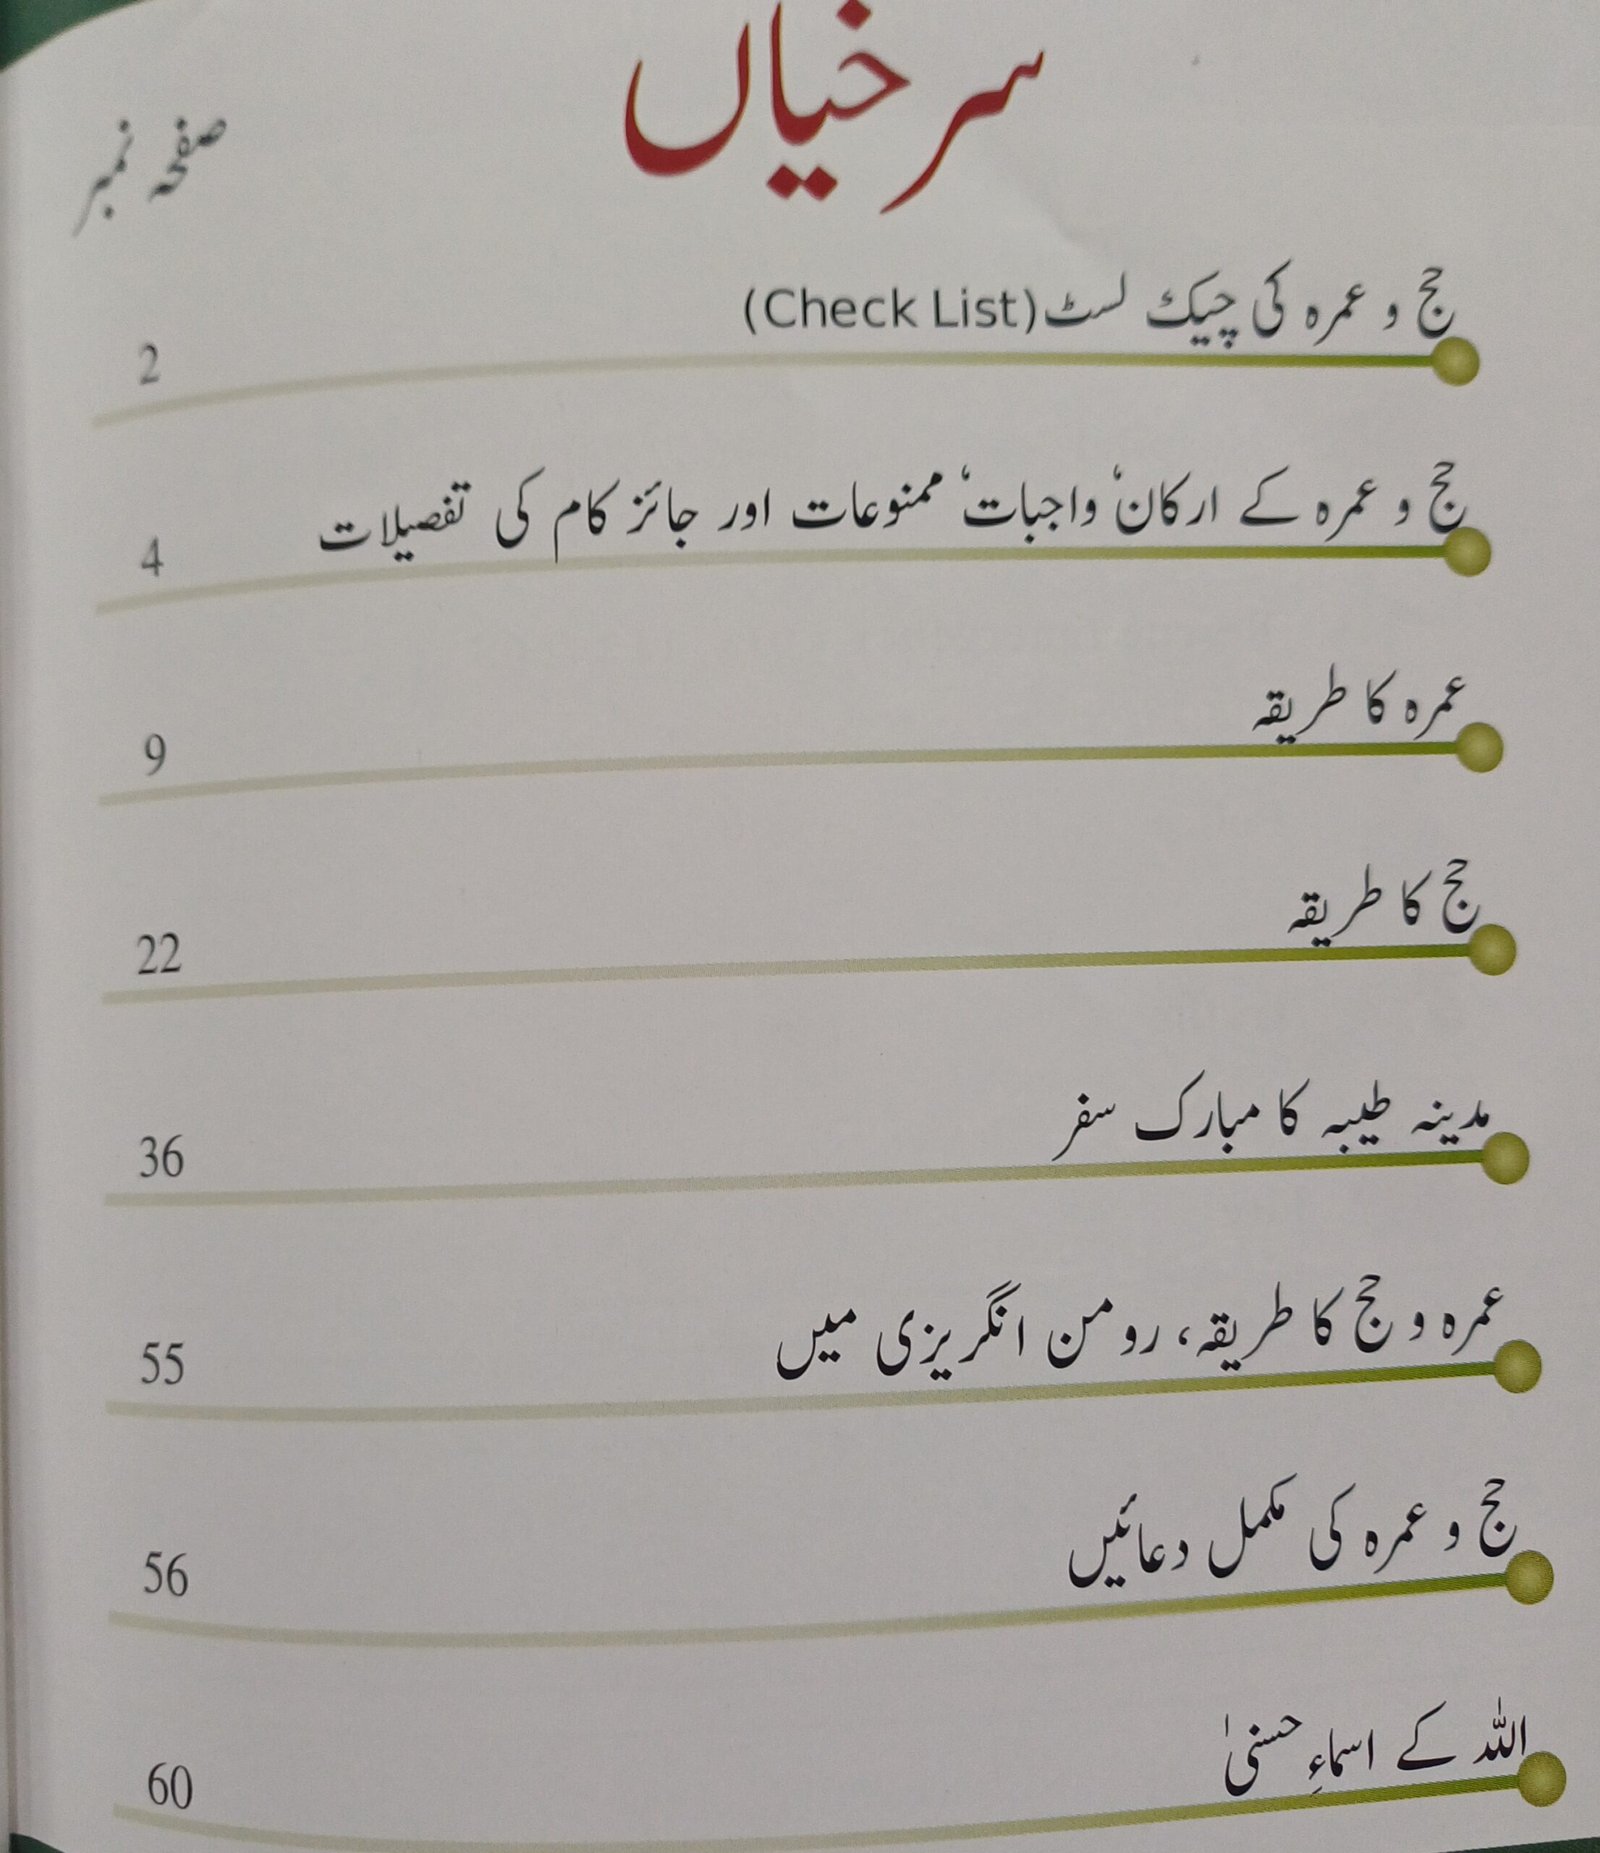 سرخیاں
صفحہ نمبر
حج و عمرہ کی چیک لسٹ (Check List)
2
حج و عمرہ کے ارکان‘ واجبات‘ ممنوعات اور جائز کام کی تفصیلات
4
عمرہ کا طریقہ
9
حج کا طریقہ
22
مدینہ طیبہ کا مبارک سفر
36
عمرہ و حج کا طریقہ، رومن انگریزی میں
55
حج و عمرہ کی مکمل دعائیں
56
اللہ کے اسماءِ حسنیٰ
60